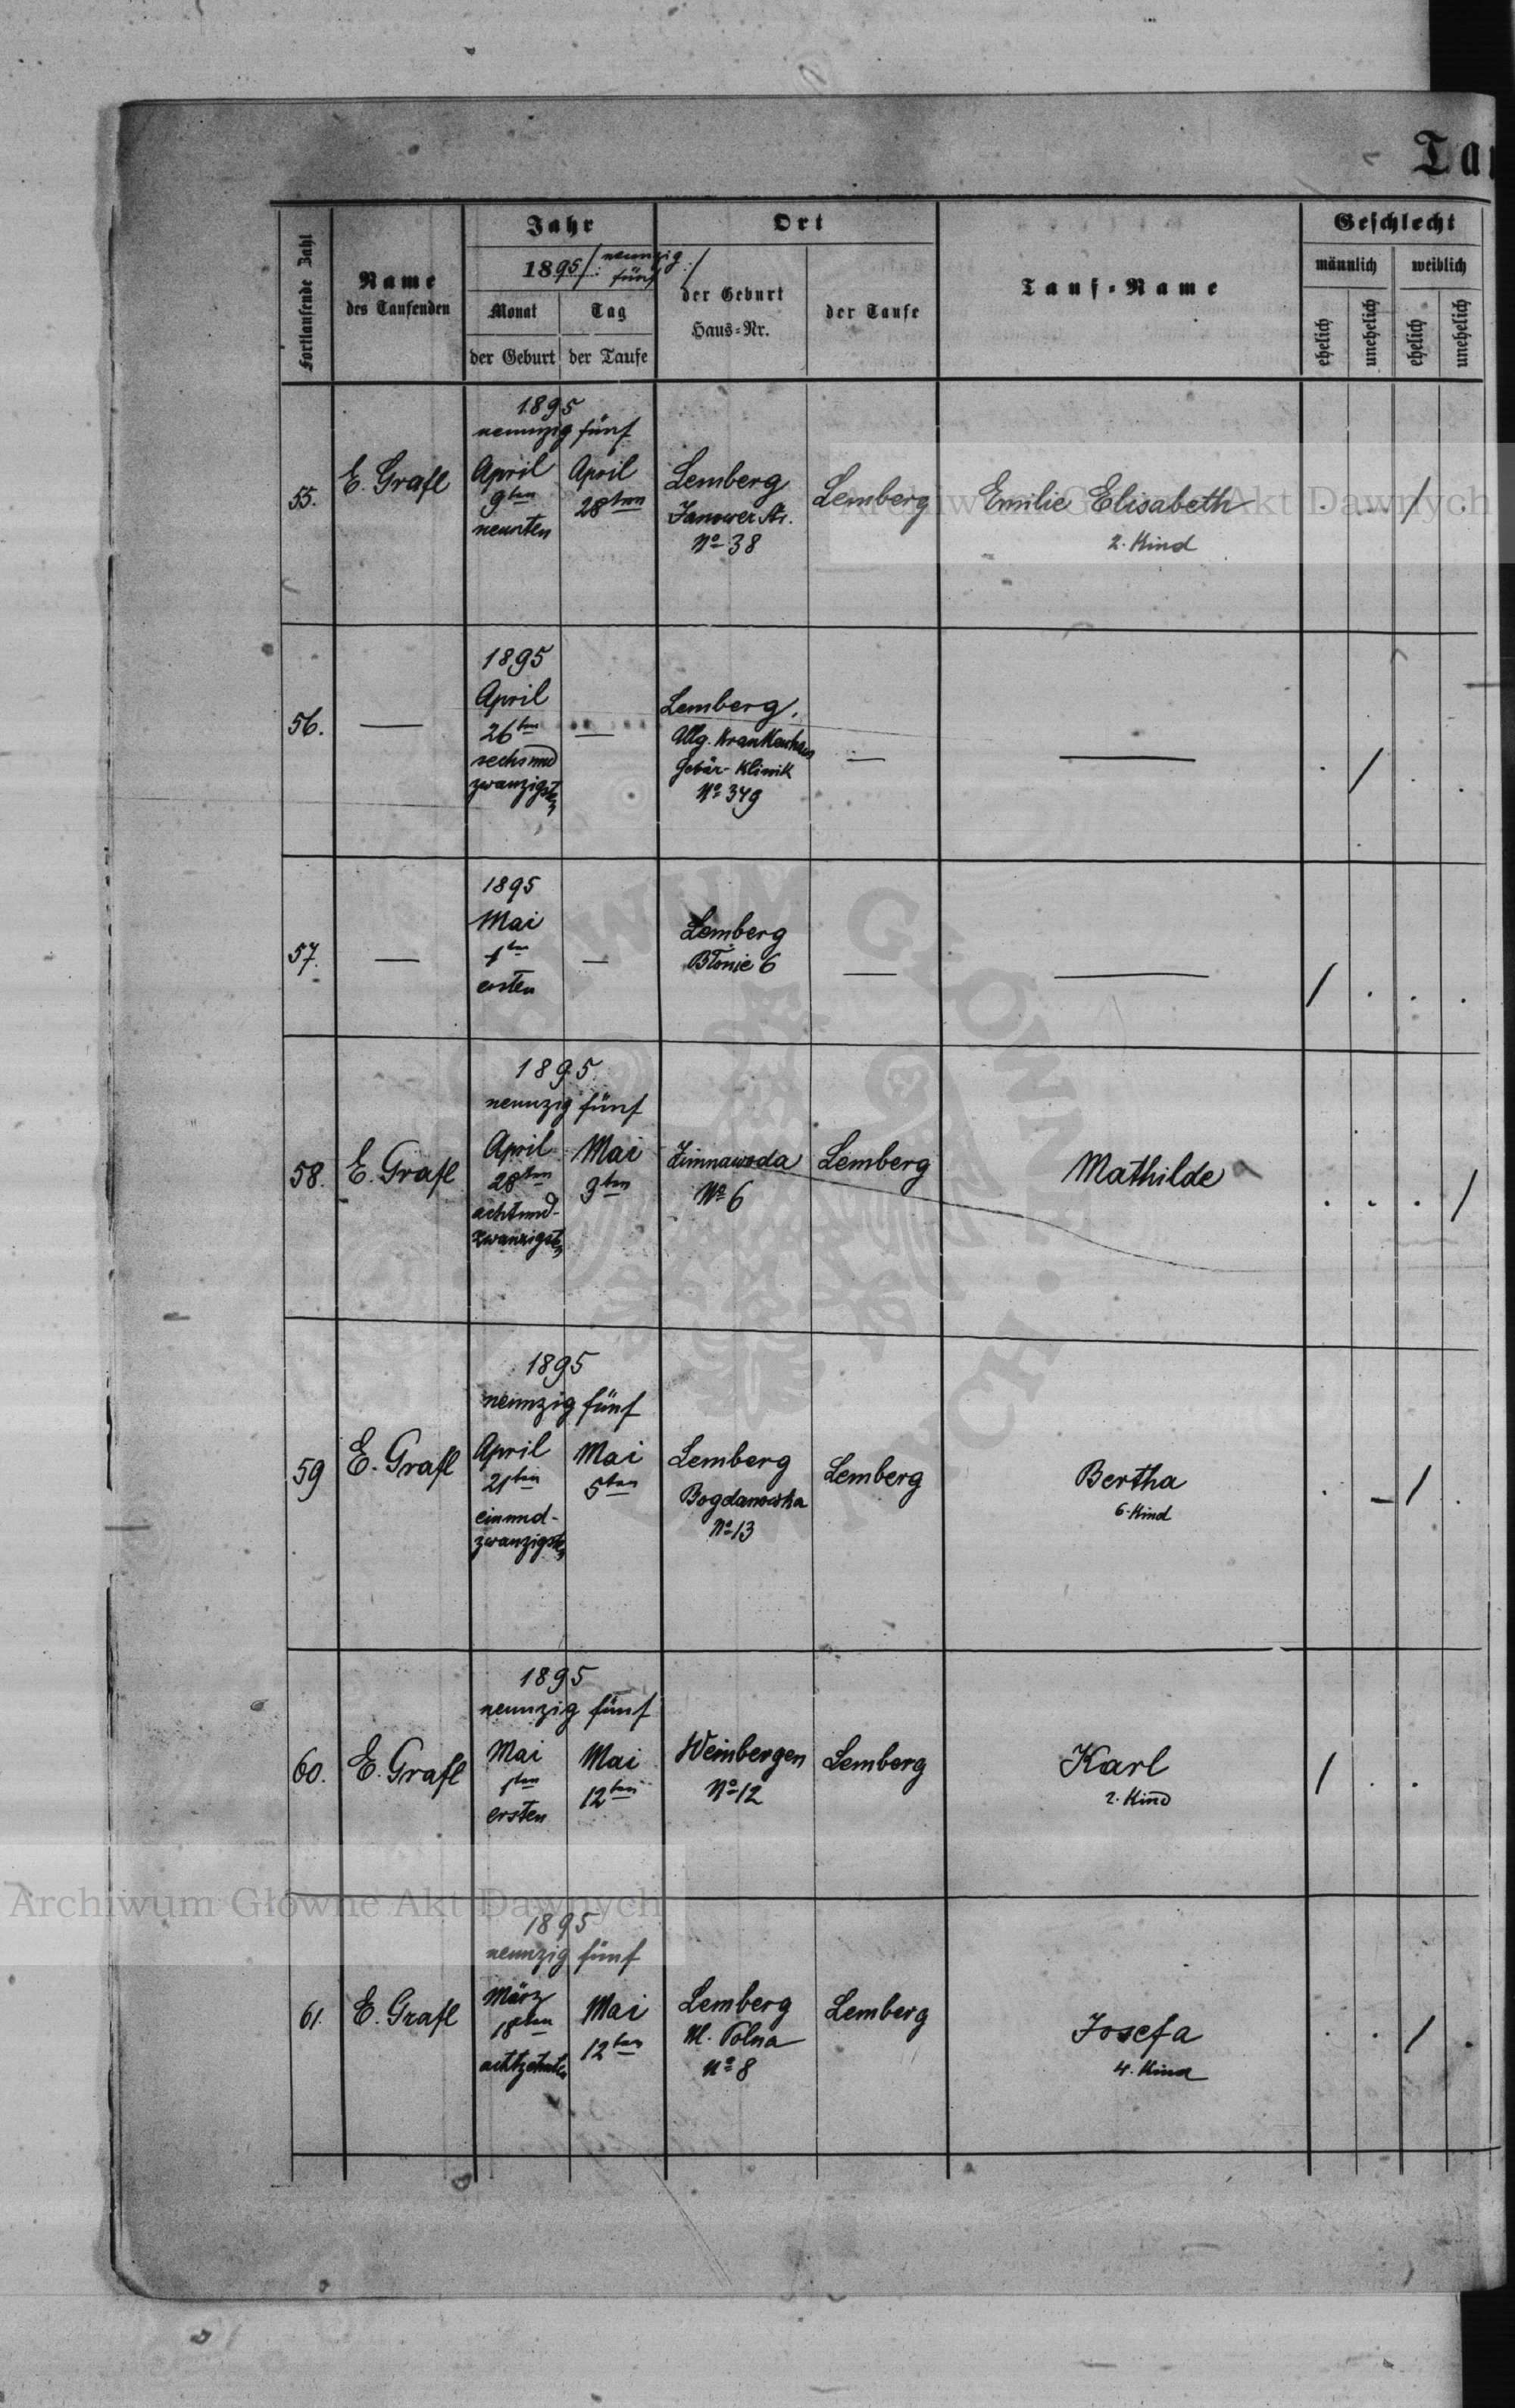 Tau
Fortlaufende Zahl
Name
des Taufenden
Jahr
1895 /: neunzig
fünf :/
Monat
Tag
der Geburt
der Taufe
Ort
der Geburt
Haus-Nr.
der Taufe
Tauf-Name
Geschlecht
männlich
weiblich
ehelich
unehelich
ehelich
unehelich
1895
neunzig fünf
55.
E. Grafl
April
9ten
neunten
April
28ten
Lemberg
Janower Str.
No 38
Lemberg
Emilie Elisabeth
2. Kind
. . / .
Archiwum Główne Akt Dawnych
56.
—
1895
April
26ten
sechsund
zwanzigsten
—
Lemberg,
Allg. Krankenhaus
Gebär-Klinik
No 349
—
—
. / . .
57.
—
1895
Mai
1ten
ersten
—
Lemberg
Błonie 6
—
—
/ . . .
1895
neunzig fünf
58.
E. Grafl
April
28ten
achtund-
zwanzigsten
Mai
9ten
Zimnawoda
No 6
Lemberg
Mathilde
. . . /
1895
neunzig fünf
59
E. Grafl
April
21ten
einund-
zwanzigsten
Mai
5ten
Lemberg
Bogdanowka
No 13
Lemberg
Bertha
6. Kind
. - / .
1895
neunzig fünf
60.
E. Grafl
Mai
1ten
ersten
Mai
12ten
Weinbergen
No 12
Lemberg
Karl
2. Kind
/ . .
Archiwum Główne Akt Dawnych
1895
neunzig fünf
61.
E. Grafl
März
18ten
achtzehnten
Mai
12ten
Lemberg
Ul. Polna
No 8
Lemberg
Josefa
4. Kind
. . / .